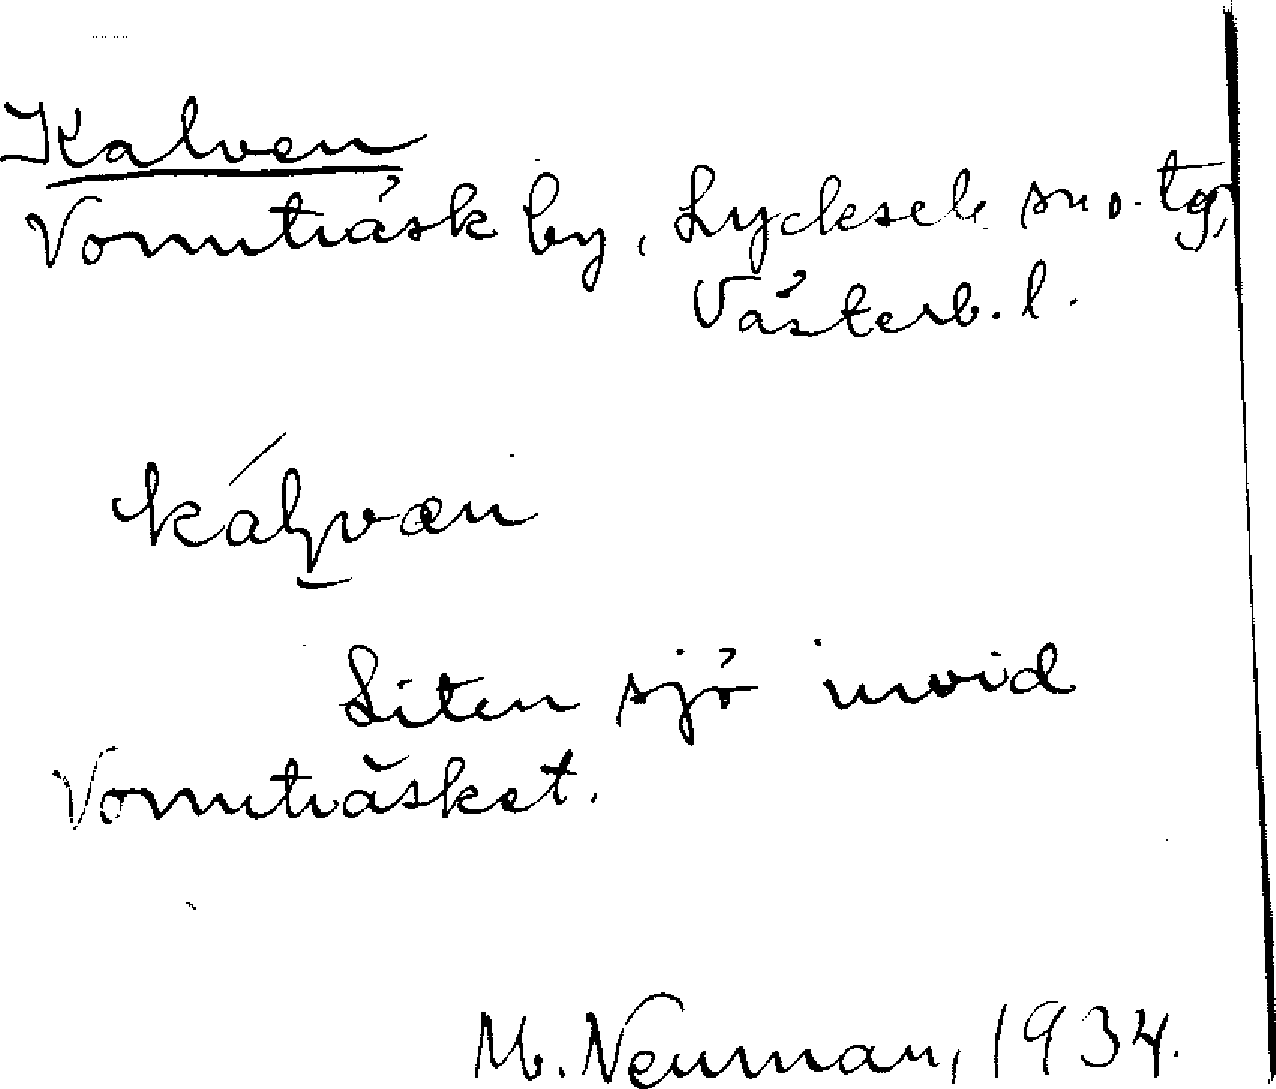 Kalven
Vormträsk by, Lycksele sn o. tg,
Västerb. l.
kálvæn
Liten sjö invid
Vormträsket.
M. Neuman, 1934.